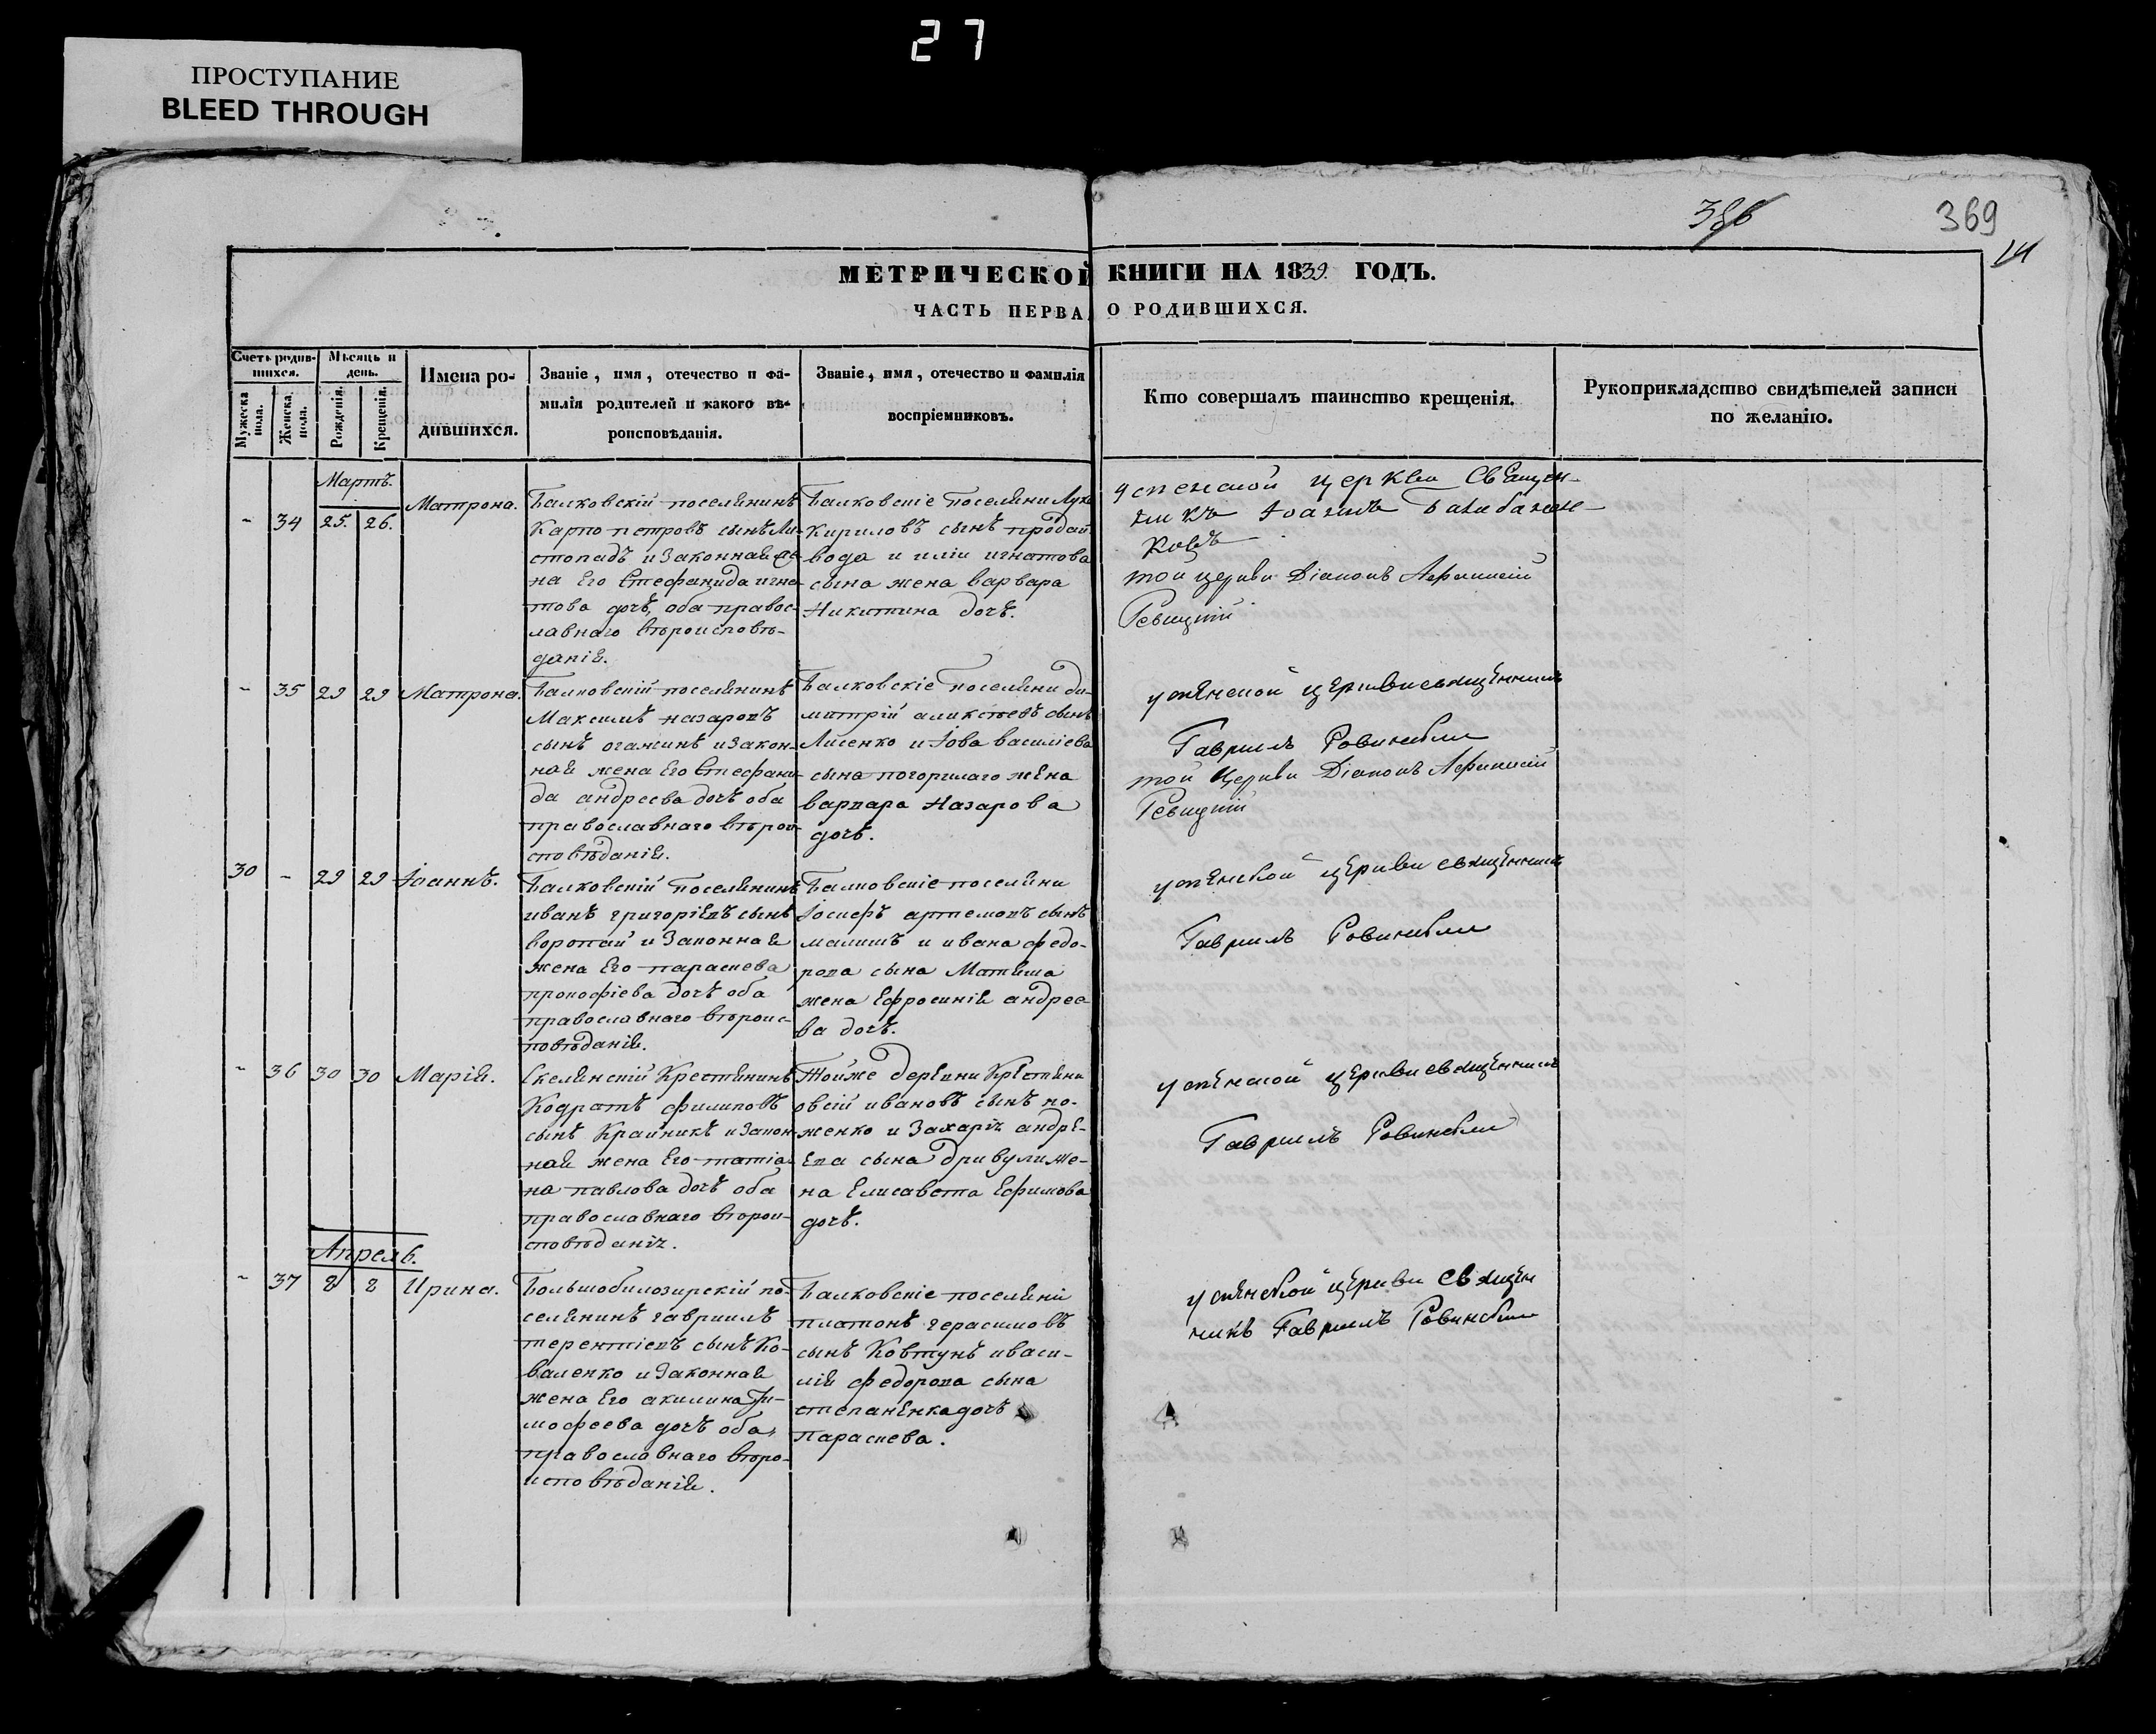 27
ПРОСТУПАНИЕ
BLEED THROUGH
386
369
МЕТРИЧЕСКОЙ КНИГИ НА 1839. ГОДЪ.
ЧАСТЬ ПЕРВА О РОДИВШИХСЯ.
Счетъ родив-
шихся.
Мужеска
пола.
Женска
пола.
Мѣсяцъ и
день.
Рожденія.
Крещенія.
Имена ро-
дившихся.
Званіе, имя, отечество и фа-
милія родителей и какого вѣ-
роисповѣданія.
Званіе, имя, отечество и фамилія
воспріемниковъ.
Кто совершалъ таинство крещенія.
Рукоприкладство свидѣтелей записи
по желанію.
Мартъ.
- 34 25. 26. Матрона.
Балковскій поселянинъ
Карпо петровъ сынъ Ли-
стопадъ и законная же
на Его Стефанида игна
това дочь, оба правос-
лавнаго вѣроисповѣ-
данія.
Балковскіе поселяни Лука
Кириловъ сынъ продай
вода и иліи игнатова
сына жена варвара
Никитина дочь.
успенской церкви Священ-
никъ Іоаннъ
той церкви Діаконъ
Ревицкій
- 35 29 29 Матрона.
Балковскій поселянинъ
Максимъ назаровъ
сынъ и закон-
ная жена Его Стефани-
да андреева дочь оба
православнаго вѣрои-
сповѣданія.
Балковскіе поселяни ди-
митрій аликсѣевъ сынъ
Лисенко и Іова василіева
сына погорилаго жена
варвара Назарова
дочь.
успенской церкви священникъ
Гавріилъ Ровинскій
той Церкви Діаконъ
Ревицкій
30 - 29 29 Іоаннъ.
Балковскій поселянинъ
иванъ григоріевъ сынъ
воропай и Законная
жена Его параскева
прокофіева дочь оба
православнаго вѣроис-
повѣданія.
Балковскіе поселяни
Іосифъ артемовъ сынъ
малишъ и ивана федо-
рова сына
жена Ефросинія андрее-
ва дочь.
успенской церкви священникъ
Гавріилъ Ровинскій
- 36 30 30 Марія.
Скелянскій Крестянинъ
Кодратъ филиповъ
сынъ Крайникъ и закон-
ная жена Его татіа-
на павлова дочь оба
православнаго вѣрои-
сповѣданія.
Тойже деревни Крестяни
овсій ивановъ сынъ но-
женко и Захарія андре-
ева сына дривули же-
на Елисавета Ефимова
дочь.
успенской церкви священникъ
Гавріилъ Ровинскій
Апрель.
- 37 2 2 Ирина.
Большобилозирскій по-
селянинъ гавріилъ
терентіевъ сынъ Ко-
валенко и Законная
жена Его акилина Ти-
мофеева дочь оба
православнаго вѣро-
исповѣданія.
Балковскіе поселяни
платонъ герасимовъ
сынъ Ковтунъ и васи-
лія федорова сына
степаненка дочь
Параскева.
успенской церкви священ
никъ Гавріилъ Ровинскій